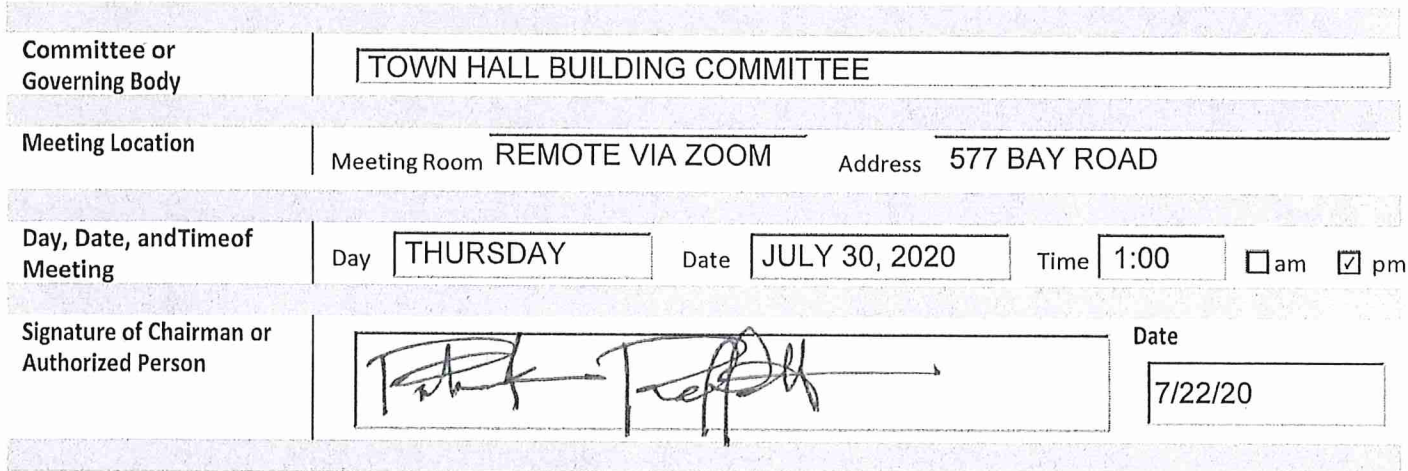 Committee or
Governing Body
TOWN HALL BUILDING COMMITTEE
Meeting Location
Meeting Room REMOTE VIA ZOOM Address 577 BAY ROAD
Day, Date, andTimeof
Meeting
Day THURSDAY Date JULY 30, 2020 Time 1:00 am pm
Signature of Chairman or
Authorized Person
Date
7/22/20